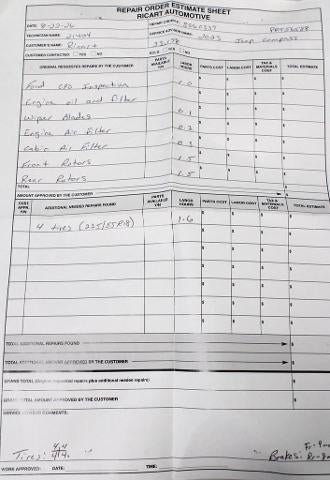 REPAIR ORDER ESTIMATE SHEET
RICART AUTOMOTIVE
DATE:
TECHNICIAN NAME: 21404
CUSTOMER'S NAME: Ricart 2023 Jeep Compass
CUSTOMER CONTACTED: YES NO SOLD: YES NO
ORIGINAL REQUESTED REPAIRS BY THE CUSTOMER PARTS AVAILABLE Y/N LABOR HOURS PARTS COST LABOR COST TAX & MATERIALS COST TOTAL ESTIMATE
Ford CPO Inspection 1.0 $ $ $ $
Engine oil and filter $ $ $ $
Wiper Blades 0.1 $ $ $ $
Engine Air Filter 0.2 $ $ $ $
Cabin Air Filter 0.3 $ $ $ $
Front Rotors 1.5 $ $ $ $
Rear Rotors 1.5 $ $ $ $
TOTAL
AMOUNT APPROVED BY THE CUSTOMER
ADDITIONAL NEEDED REPAIRS FOUND PARTS AVAILABLE Y/N LABOR HOURS PARTS COST LABOR COST TAX & MATERIALS COST TOTAL ESTIMATE
4 tires (225/55R18) 1.6 $ $ $ $
TOTAL ADDITIONAL REPAIRS FOUND
TOTAL ADDITIONAL AMOUNT APPROVED BY THE CUSTOMER
GRAND TOTAL (Original requested repairs plus additional needed repairs) $
GRAND TOTAL AMOUNT APPROVED BY THE CUSTOMER $
COMMENTS:
Tires: 4|4
4|4 Brakes:
WORK APPROVED: DATE: TIME: